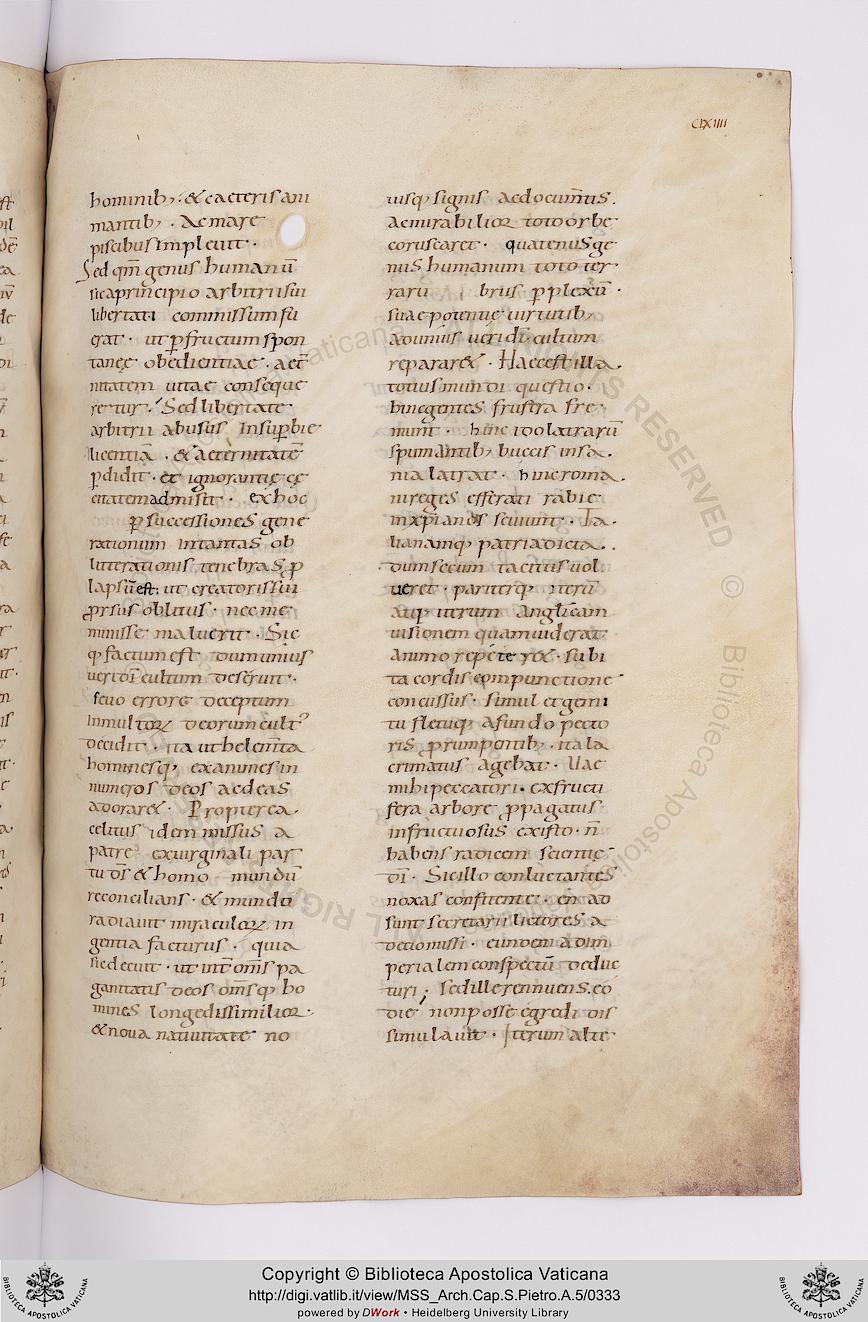 CLXIIII
hominib; · & caeteris ani
mantib; · Ac mare
piscibus impleuit ·
Sed qm̄ genus humanū
sic a principio arbitrii sui
libertati commissum fu
erat · ut p fructum spon
tanęę obedientiae · aet̄
nitatem uitae conseque
retur · Sed libertate
arbitrii abusus Insupbie
licentiā · & aeternitatē
pdidit · et ignorantię cę
citatem admisit · ex hoc
p successiones gene
rationum in tantas ob
litterationis tenebras p
lapsū est · ut creatoris sui
prsus oblitus · nec me
minisse maluerit · Sic
q; factum est dum unius
ueri dī cultum deserunt ·
seuo errore deceptum
in multorum deorum cult;
decidit · ita ut helem̄ta
hominesq; exanimes in
numeros deos ac deas
adorar& · Propterea ·
celitus idem missus a
patre ex uirginali par
tu dī & homo mundū
reconcilians · & mundo
radiauit miraculorum in
gentia facturus · quia
sic decuit · ut int̄ om̄s pa
ganitatis deos om̄sq; ho
mines longe dissimilior ·
& noua natiuitate no
uisq; signis ac docum̄tis ·
Ac mirabilior toto orbe
coruscaret · quatenus ge
nus humanum toto ter
rarū brus pplexū ·
suae potentie uirtutib;
ad unius ueri dī cultum
reparar& · Haec est illa ·
totius mundi questio ·
hinc gentes frustra fre
munt · hinc idolatrarū
spumantib; buccis insa ·
nia latrat · hinc roma ·
ni reges efferati rabie
in xpianos seuiunt · Ta ·
lia namq; patria dicta ·
dum secum tacitus uol
ueret · pariterq; iterū
atq; iterum Angli̅cam
uisionem quam uiderat
Animo repetere r& · subi
ta cordis compunctione
concussus · simul et gemi
tu fletuq; A fundo pecto
ris prumpentib; · ita la
crimatus agebat · Uae
mihi peccatori · ex fructi
fera arbore ppagatus
infructuosus existo · n̄
habens radicem scientię
dī · Sic illo conluctantes
noxas confitente · en ad
sunt secretarii lictores a
decio missi · eundem ad im
perialem conspectū deduc
turi ; sed ille rennuens eo
die non posse egredi dis
simulauit · Iterum alte
Copyright © Biblioteca Apostolica Vaticana
http://digi.vatlib.it/view/MSS_Arch.Cap.S.Pietro.A.5/0333
powered by DWork • Heidelberg University Library